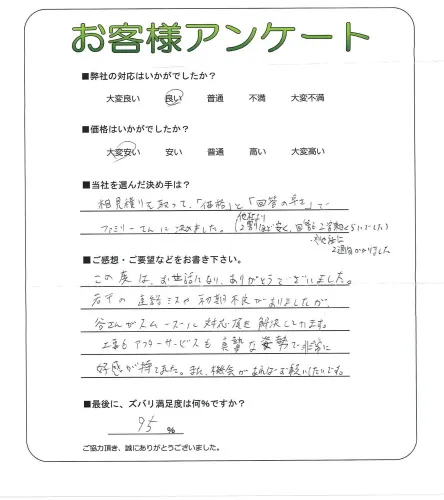 お客様アンケート
■弊社の対応はいかがでしたか？
大変良い 良い 普通 不満 大変不満
■価格はいかがでしたか？
大変安い 安い 普通 高い 大変高い
■当社を選んだ決め手は？
相見積りを取って、「価格」と「回答の早さ」で
ファミリーさんに決めました。
(他社より
2割ほど安く、回答も2日程くらいでした)
他社は
2週間かかりました
■ご感想・ご要望などをお書き下さい。
この度は、お世話になり、ありがとうございました。
若干の連絡ミスや初期不良がありましたが、
谷さんがスムーズに対応頂き解決してます。
工事もアフターサービスも真摯な姿勢で非常に
好感が持てました。また、機会があればお願いしたいです。
■最後に、ズバリ満足度は何%ですか？
95 %
ご協力頂き、誠にありがとうございました。